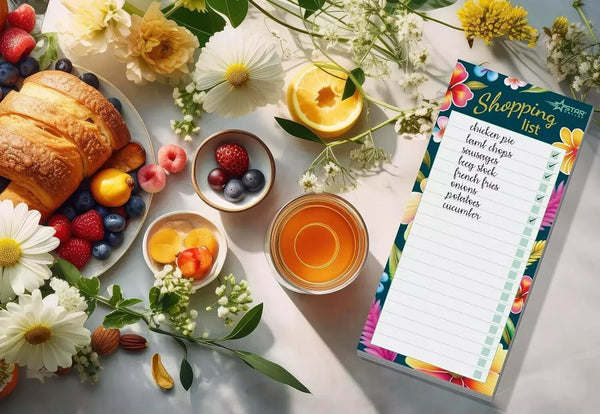 STAR
Shopping
list
chicken pie
lamb chops
sausages
beef stock
french fries
onions
potatoes
cucumber